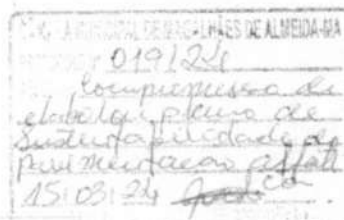 MUNICIPAL DE MAGALHÃES DE ALMEIDA-MA
019/24
Compromisso de
elaborar plano de
Sustentabilidade de
pavimentação asfalt
ica
15/03/24